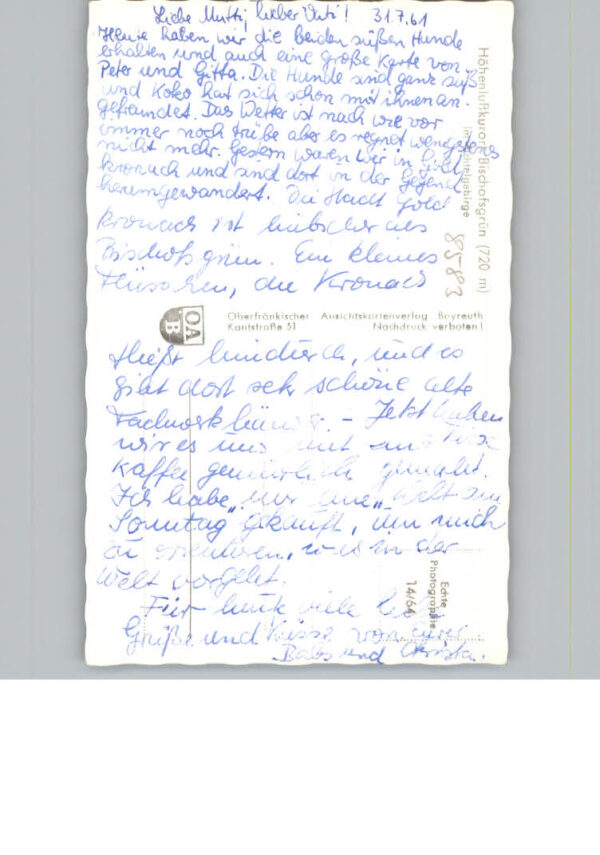 Liebe Mutti, lieber Vati! 31.7.61
Heute haben wir die beiden süßen Hunde
erhalten und auch eine große Karte von
Peter und Gitta. Die Hunde sind ganz süß
und Koko hat sich schon mit ihnen an-
gefreundet. Das Wetter ist nach wie vor
immer noch trübe aber es regnet wenigstens
nicht mehr. Gestern waren wir in Gold
kronach und sind dort in der Gegend
herumgewandert. Die Stadt Gold
kronach ist hübscher als
Bischofsgrün. Ein kleines
Flüsschen, die Kronach
fließt hindurch, und es
gibt dort sehr schöne alte
Fachwerkhäuser. – Jetzt haben
wir es uns mit
Kaffee gemütlich gemacht.
Ich habe mir eine „Welt am
Sonntag gekauft, um mich
zu orientieren, was in der
Welt vorgeht.
Für heute viele
Grüße und Küsse von eurer
Babs und Christa.
Höhenluftkurort Bischofsgrün (720 m)
im Fichtelgebirge
8583
OA
B
Oberfränkischer Ansichtskartenverlag Bayreuth
Kantstraße 51 Nachdruck verboten!
Echte
Photographie
14/64